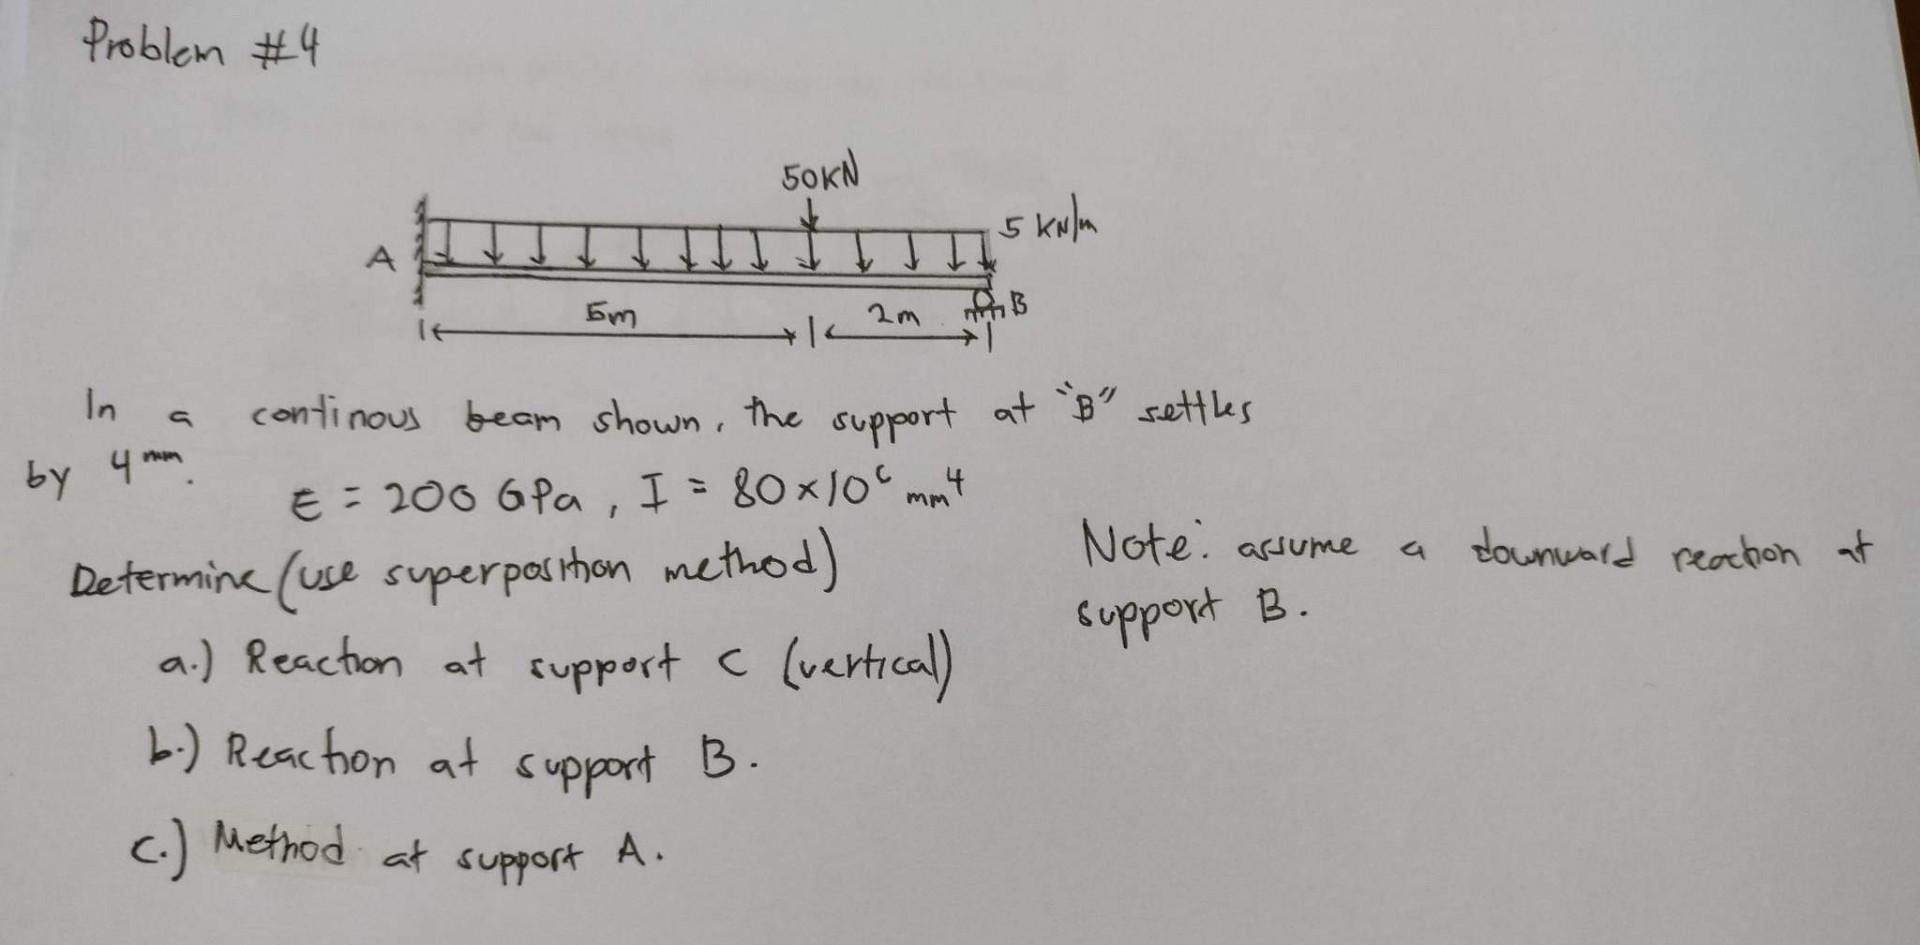 Problem #4
50KN
5 KN/m
A
5m
2m
B
In a continous beam shown, the support at "B" settles
by 4mm.
E = 200 GPa, I = 80×10⁶ mm⁴
Determine (use superposition method)
Note: assume a downward reaction at
support B.
a.) Reaction at support C (vertical)
b.) Reaction at support B.
c.) Method at support A.